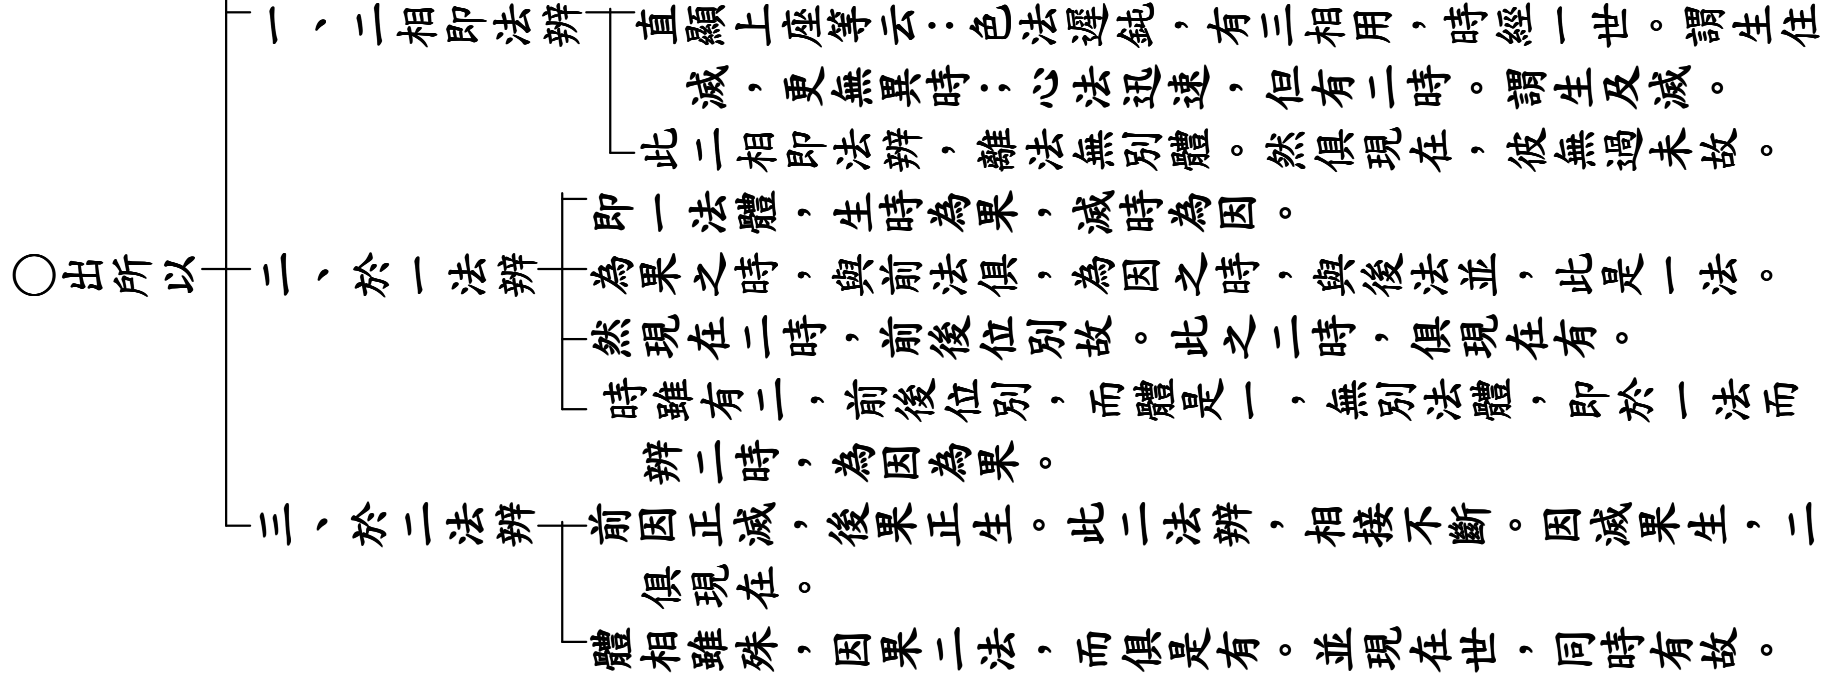 ○出所以
一、二相即法辨
直顯上座等云：色法遲鈍，有三相用，時經一世。謂生住
滅，更無異時；心法迅速，但有二時。謂生及滅。
此二相即法辨，離法無別體。然俱現在，彼無過未故。
二、於一法辨
即一法體，生時為果，滅時為因。
為果之時，與前法俱，為因之時，與後法並，此是一法。
然現在二時，前後位別故。此之二時，俱現在有。
時雖有二，前後位別，而體是一，無別法體，即於一法而
辨二時，為因為果。
三、於二法辨
前因正滅，後果正生。此二法辨，相接不斷。因滅果生，二
俱現在。
體相雖殊，因果二法，而俱是有。並現在世，同時有故。